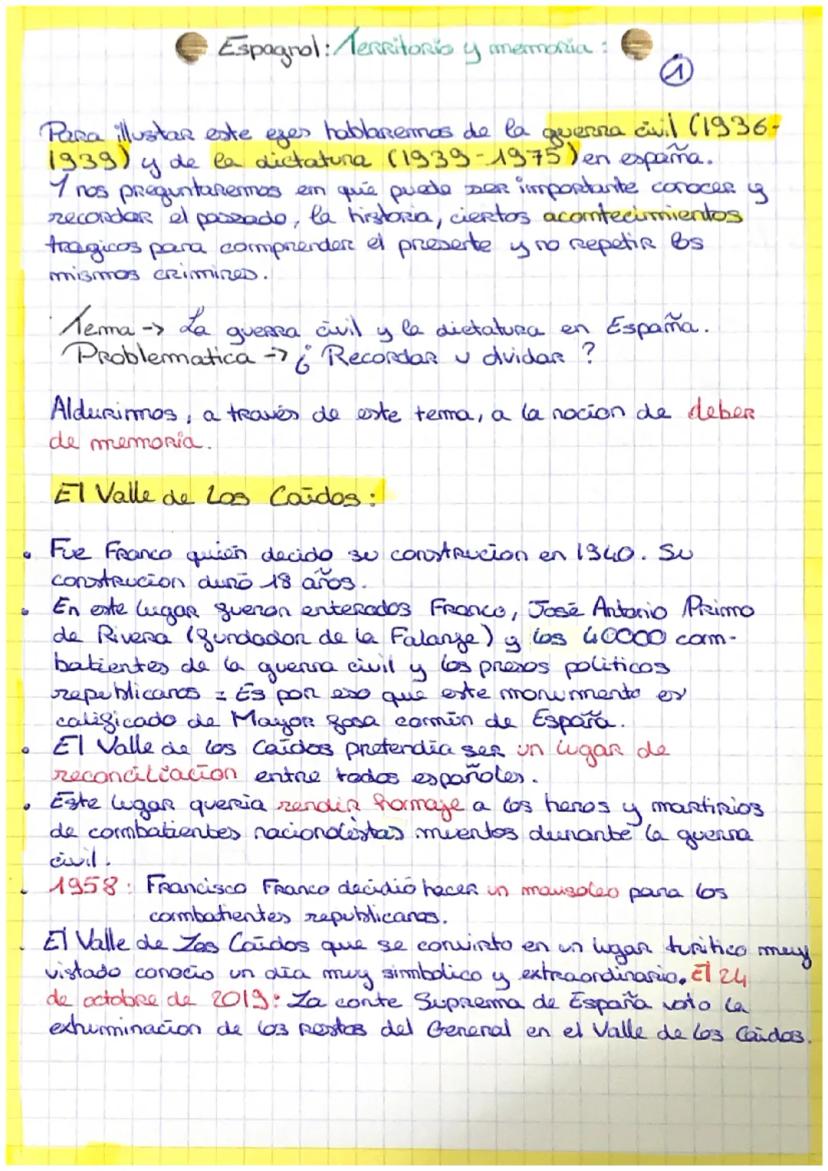 Espagnol: Territorio y memoria:
1
Para illustar este ezes hablaremos de la guerra civil (1936-
1939) y de la dictatura (1939-1975) en españa.
Y nos preguntaremos em qué puede ser importante conocer y
recordar el passado, la historia, ciertos acomtecimientos
tragicos para comprender el presente y no repetir los
mismos crimines.
Tema -> La guerra civil y la dictatura en España.
Problematica -> ¿ Recordar u olvidar ?
Aldurimos, a través de este tema, a la nocion de deber
de memoria.
El Valle de Los Caídos :
• Fue Franco quién decido su construcion en 1940. Su
construcion duró 18 años.
• En este lugar fueron enterados Franco, José Antonio Primo
de Rivera (fundador de la Falange) y los 40000 com-
batientes de la guerra civil y los presos politicos
republicanos = Es por eso que este monumento es
calificado de Mayor fosa comün de España.
• El Valle de los Caídos pretendía ser un lugar de
reconciliacion entre todos españoles.
• Este lugar queria rendir homaje a los heros y martirios
de combatientes nacionalistas muertos durante la guerra
civil.
• 1958: Francisco Franco decidió hacer un mausoleo para los
combatientes republicanos.
• El Valle de Los Caídos que se convirto en un lugar turitico muy
vistado conocio un día muy simbolico y extraordinario. El 24
de octobre de 2019: La corte Suprema de España voto la
exhuminacion de los restos del General en el Valle de los Caídos.